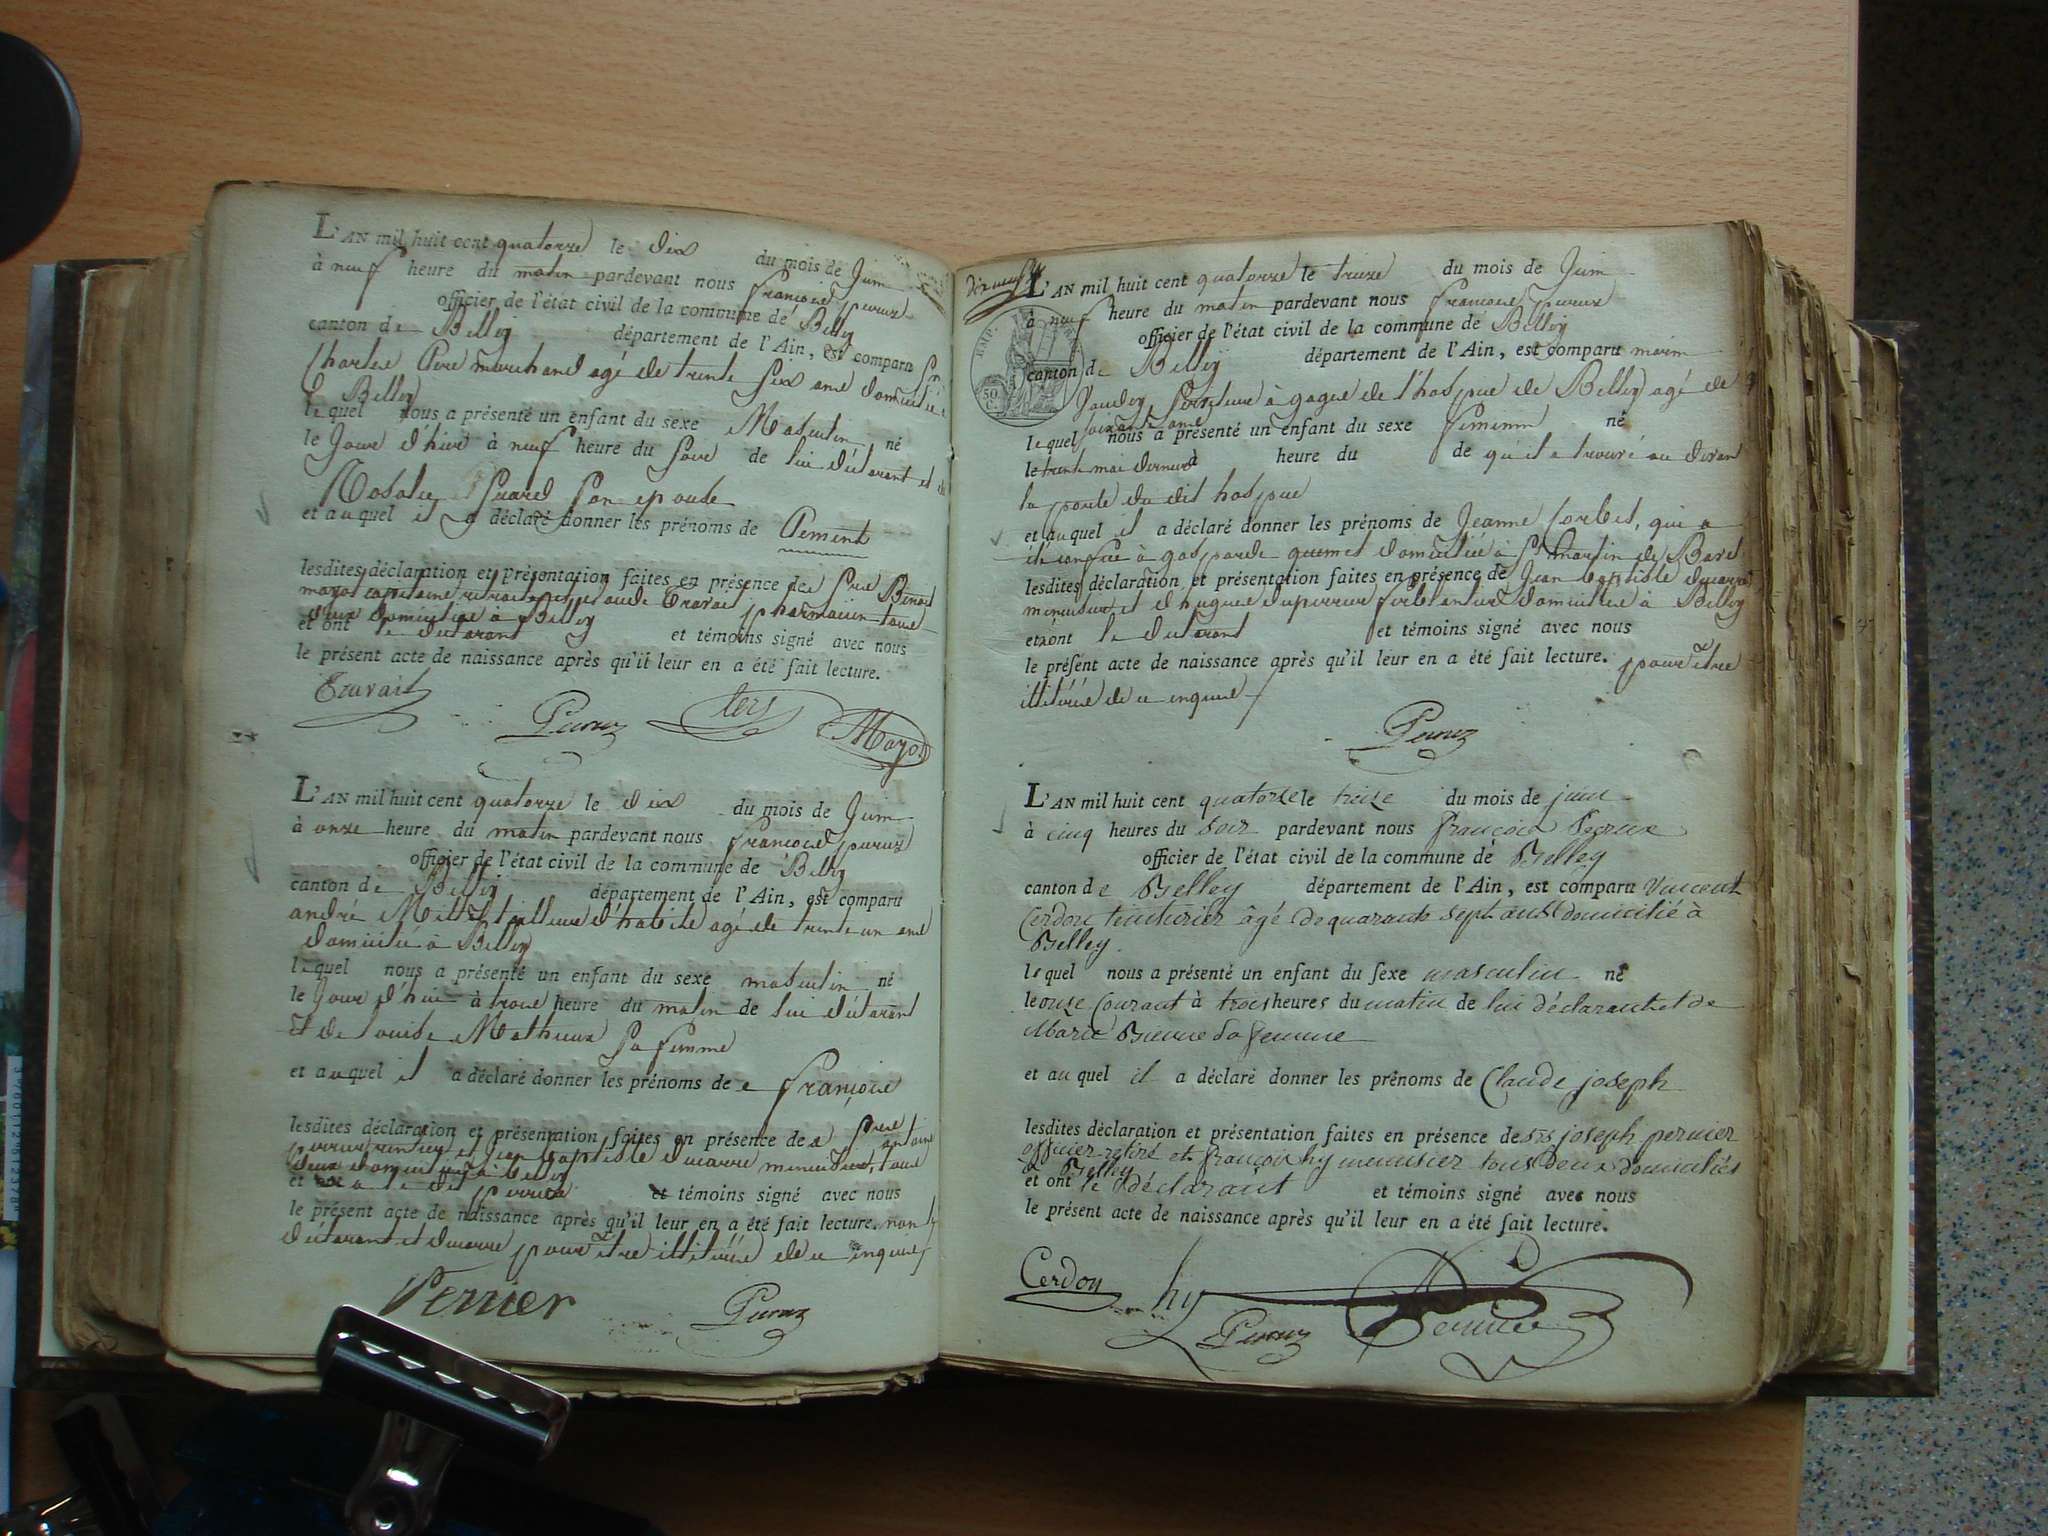 L'AN mil huit cent quatorze le dix du mois de Juin
à neuf heure du matin pardevant nous françois peruz
officier de l'état civil de la commune de Belley
canton de Belley département de l'Ain, est comparu
Charles marchand agé de trente six ans domicilié
à Belley
lequel nous a présenté un enfant du sexe Masculin né
le Jour d'hier à neuf heure du soir de lui déclarant et de
Rosalie son epouse
et auquel il a déclaré donner les prénoms de
lesdites déclaration et présentation faites en présence de
mayot capitaine retraité et claude Travail pharmacien tous
deux domiciliés à Belley
et ont le déclarant et témoins signé avec nous
le présent acte de naissance après qu'il leur en a été fait lecture.
Travail Peruz Mayot
L'AN mil huit cent quatorze le dix du mois de Juin
à onze heure du matin pardevant nous françois peruz
officier de l'état civil de la commune de Belley
canton de Belley département de l'Ain, est comparu
andré tailleur d'habits agé de trente un ans
domicilié à Belley
lequel nous a présenté un enfant du sexe masculin né
le Jour d'hier à trois heure du matin de lui déclarant
et de louise Mathieux sa femme
et auquel il a déclaré donner les prénoms de françois
lesdites déclaration et présentation faites en présence de antoine
perrier rentier et Jean baptiste ducarre menuisier, tous
deux domiciliés à belley
et ont le dit perrier et témoins signé avec nous
le présent acte de naissance après qu'il leur en a été fait lecture. non le
déclarant et ducarre pour être illitérés de ce enquis
Perrier Peruz
dixneuf
L'AN mil huit cent quatorze le treize du mois de Juin
à neuf heure du matin pardevant nous françois peruz
officier de l'état civil de la commune de Belley
canton de Belley département de l'Ain, est comparu
à gages de l'hospice de Belley agé de
soixante ans
lequel nous a présenté un enfant du sexe feminin né
le trente mai dernier à heure du de qu'il a trouvé au devan
la porte du dit hospice
et auquel il a déclaré donner les prénoms de Jeanne Corbet, qui a
été confiée à gasparde domiciliée à St Martin de Bavel
lesdites déclaration et présentation faites en présence de Jean baptiste ducarre
menuisier et hugues duperrier ferblantier domiciliés à Belley
et n'ont le déclarant et témoins signé avec nous
le présent acte de naissance après qu'il leur en a été fait lecture. pour être
illitérés de ce enquis
Peruz
L'AN mil huit cent quatorze le treize du mois de juin
à cinq heures du soir pardevant nous françois Peruz
officier de l'état civil de la commune de Belley
canton de Belley département de l'Ain, est comparu Vincent
Cerdon teinturier âgé de quarante sept ans domicilié à
Belley.
lequel nous a présenté un enfant du sexe masculin né
le onze Courant à trois heures du matin de lui déclarant et de
Marie sa femme
et auquel il a déclaré donner les prénoms de Claude joseph
lesdites déclaration et présentation faites en présence de srs joseph pernier
officier retiré et françois hy menuisier tous deux domiciliés
à Belley
et ont le déclarant et témoins signé avec nous
le présent acte de naissance après qu'il leur en a été fait lecture.
Cerdon hy Peruz Pernier